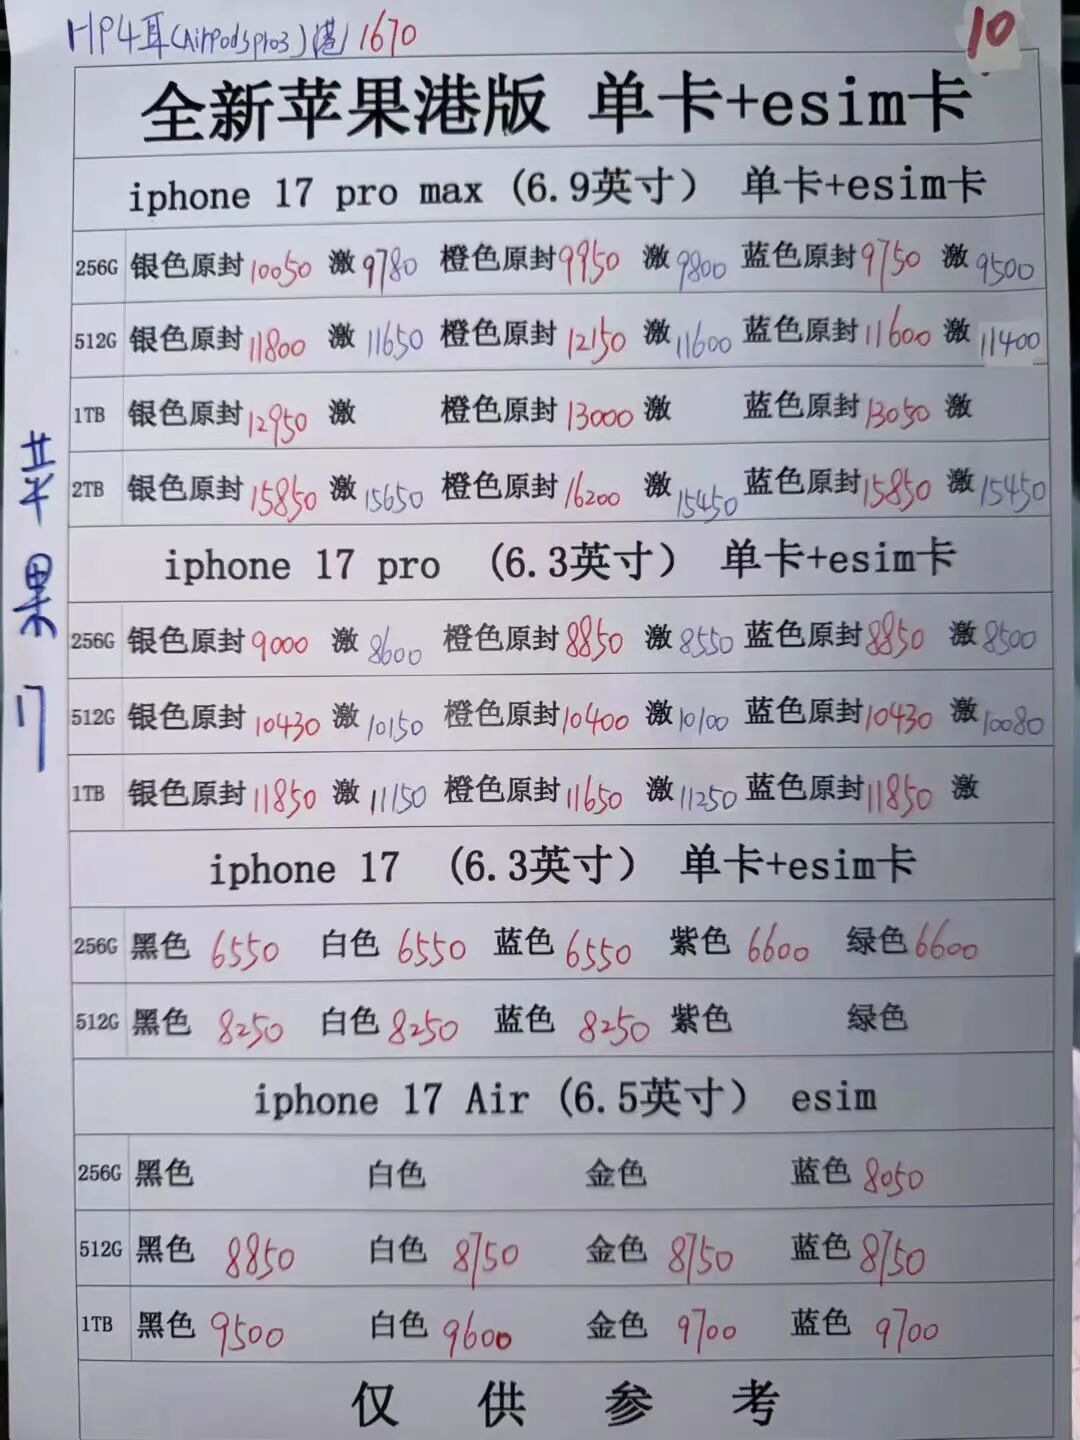 HP4耳(AirPodspro3)港/1670
10
全新苹果港版 单卡+esim卡
iphone 17 pro max (6.9英寸) 单卡+esim卡
256G 银色原封10050 激9780 橙色原封9950 激9800 蓝色原封9750 激9500
512G 银色原封11800 激11650 橙色原封12150 激11600 蓝色原封11600 激11400
1TB 银色原封12950 激 橙色原封13000 激 蓝色原封13050 激
2TB 银色原封15850 激15650 橙色原封16200 激15450 蓝色原封15850 激15450
iphone 17 pro (6.3英寸) 单卡+esim卡
256G 银色原封9000 激8600 橙色原封8850 激8550 蓝色原封8850 激8500
512G 银色原封10430 激10150 橙色原封10400 激10100 蓝色原封10430 激10080
1TB 银色原封11850 激11150 橙色原封11650 激11250 蓝色原封11850 激
iphone 17 (6.3英寸) 单卡+esim卡
256G 黑色 6550 白色 6550 蓝色 6550 紫色 6600 绿色 6600
512G 黑色 8250 白色 8250 蓝色 8250 紫色 绿色
iphone 17 Air (6.5英寸) esim
256G 黑色 白色 金色 蓝色 8050
512G 黑色 8850 白色 8750 金色 8750 蓝色 8750
1TB 黑色 9500 白色 9600 金色 9700 蓝色 9700
仅供参考
苹果17